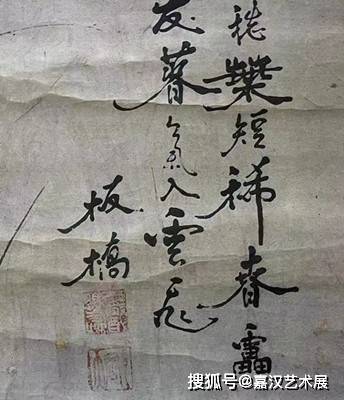 短稀春雷
友暮氣入雲飛
板橋
搜狐号@嘉汉艺术展